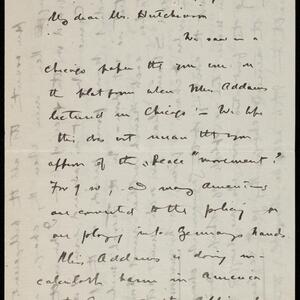 My dear Mr. Hutchinson
We saw in a
Chicago paper tht you were on
the platform when Miss Addams
lectured in Chicago! – We hope
this does not mean tht you
approve of the "Peace" movement?
For if so, and many Americans
are converted to the policy
are playing into Germany's hands
Miss Addams is doing in-
calculable harm in America